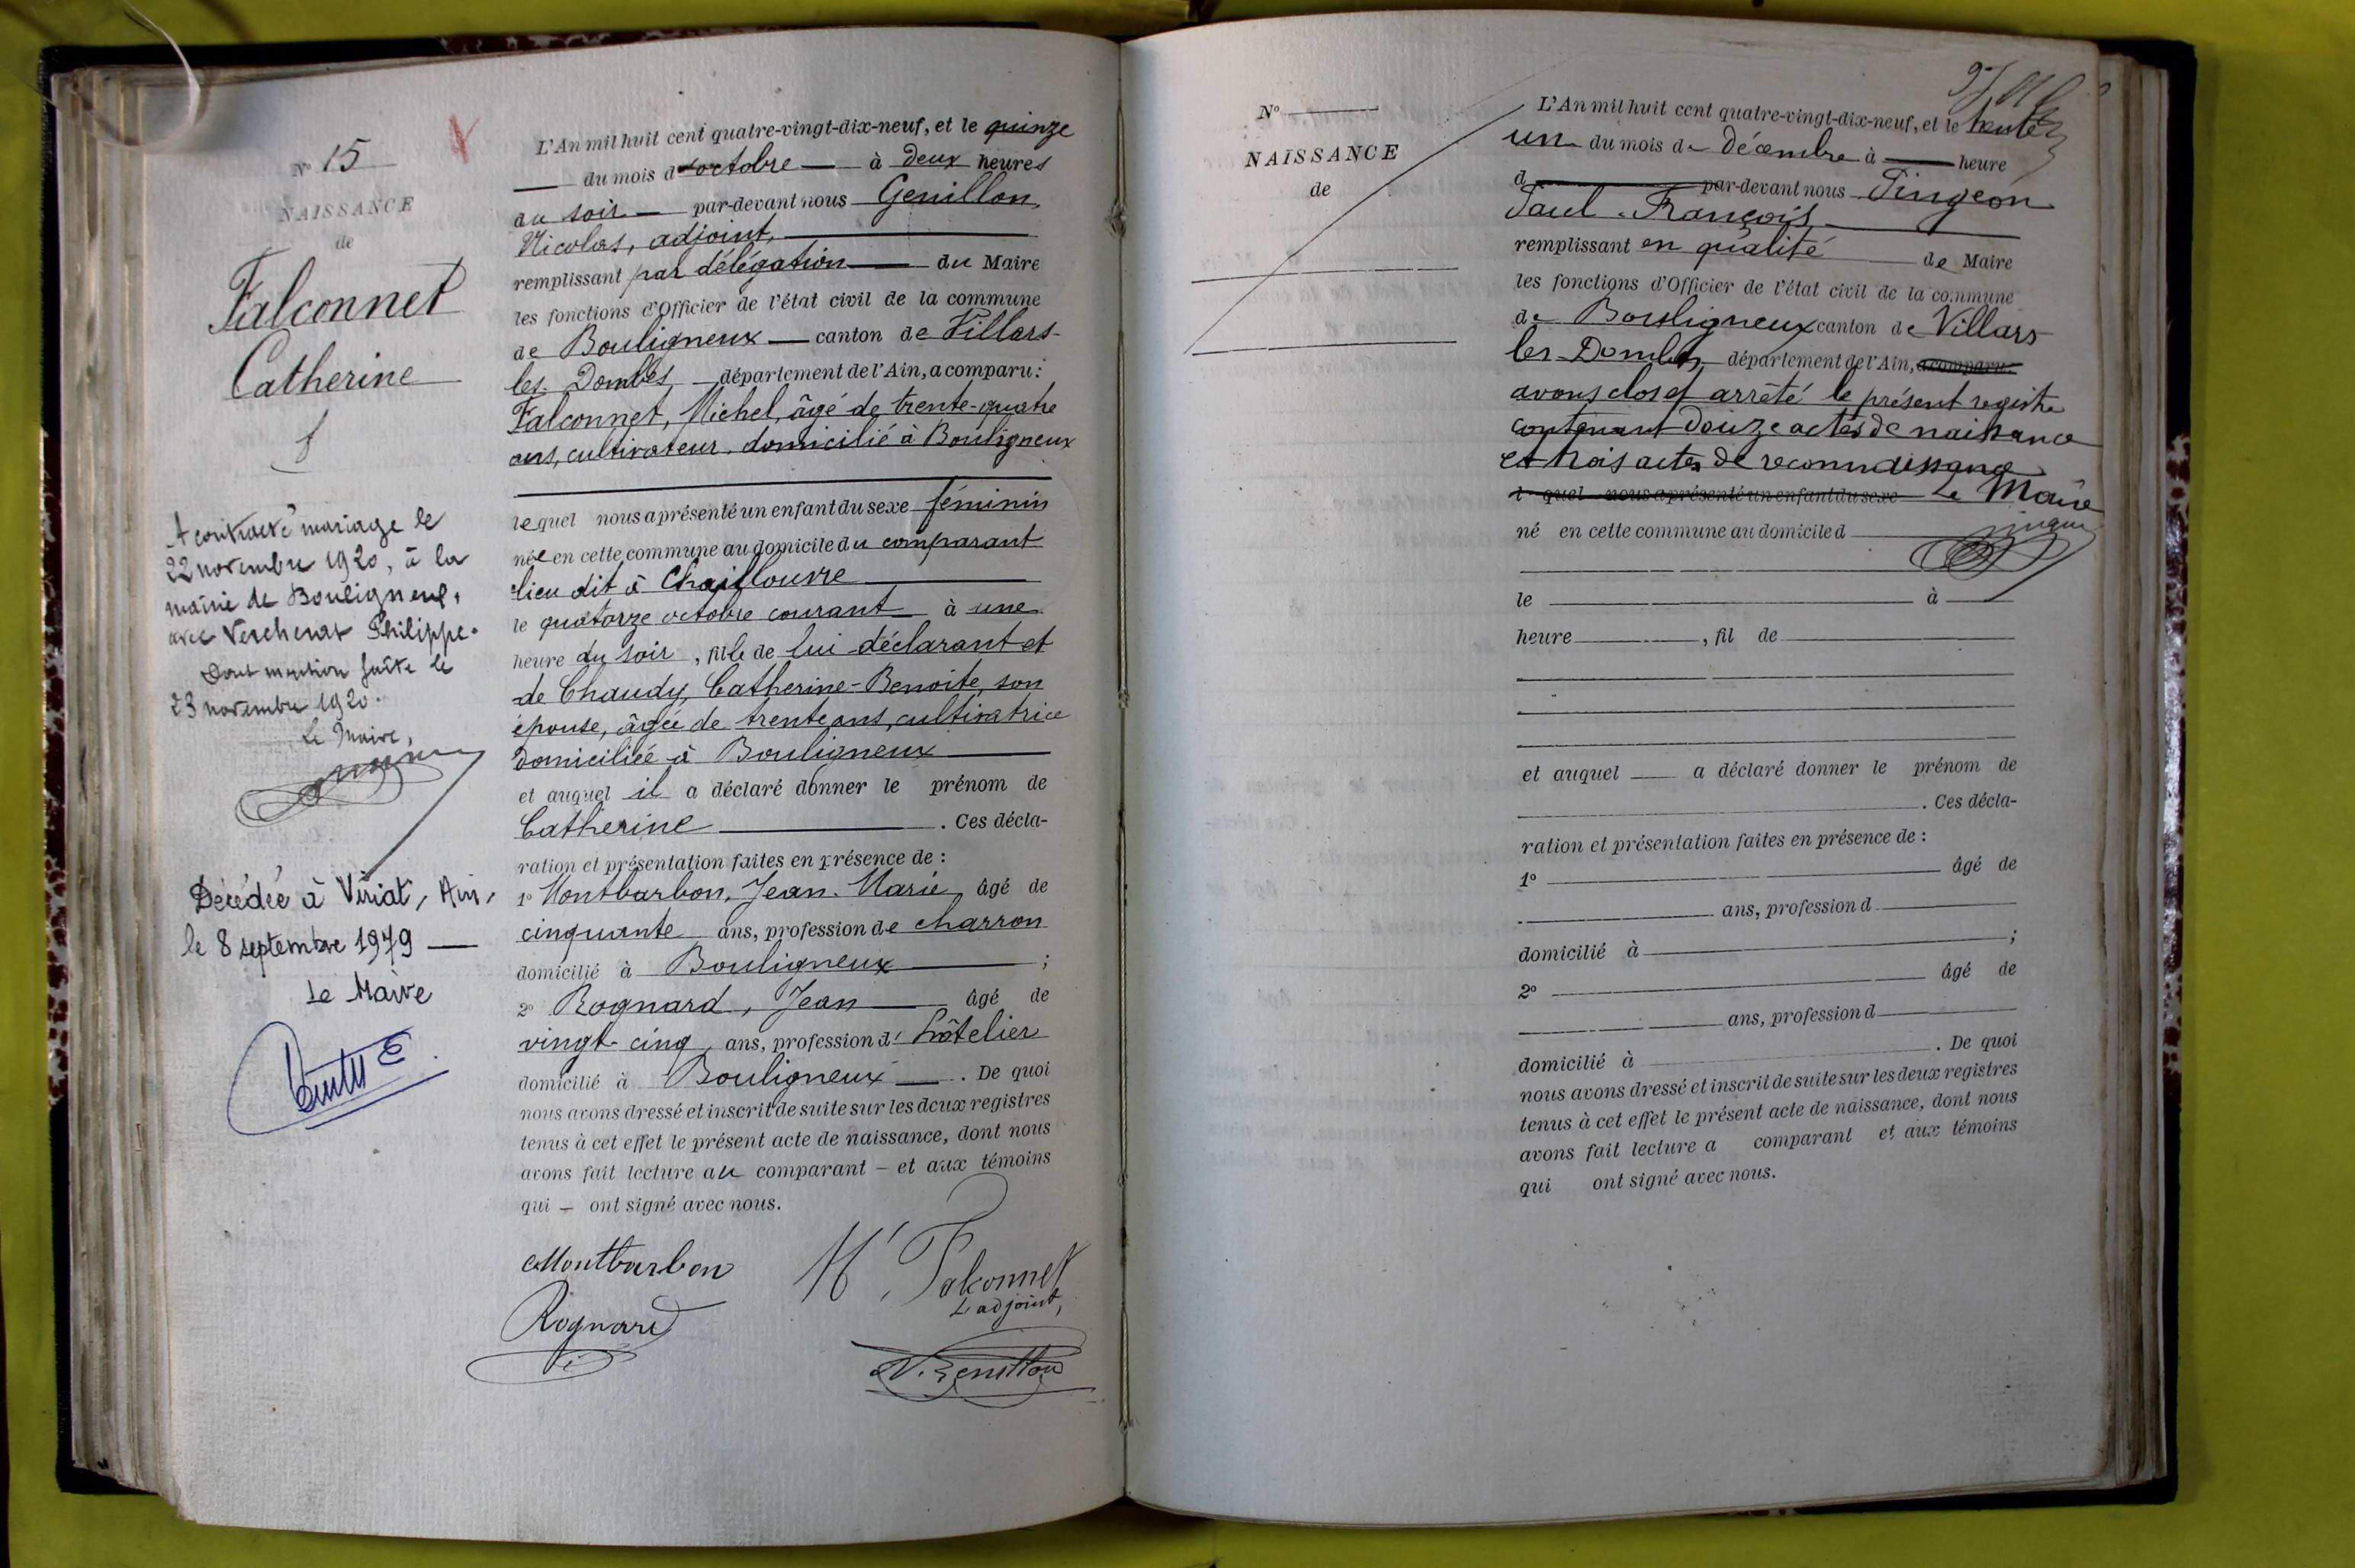 N° 15
NAISSANCE
de
Falconnet
Catherine
f
A contracté mariage le
22 novembre 1920, à la
mairie de Bouligneux,
avec Vercherat Philippe.
Dont mention faite le
23 novembre 1920.
Le Maire,
Décédée à Viriat, Ain,
le 8 septembre 1979
Le Maire
L'An mil huit cent quatre-vingt-dix-neuf, et le quinze
du mois d'octobre à deux heures
du soir par-devant nous Genillon,
Nicolas, adjoint,
remplissant par délégation du Maire
les fonctions d'Officier de l'état civil de la commune
de Bouligneux canton de Villars-
les-Dombes département de l'Ain, a comparu :
Falconnet, Michel, âgé de trente-quatre
ans, cultivateur, domicilié à Bouligneux
lequel nous a présenté un enfant du sexe féminin
née en cette commune au domicile du comparant
lieu dit à Chaillouvre
le quatorze octobre courant à une
heure du soir, fille de lui déclarant et
de Chaudy, Catherine-Benoite, son
épouse, âgée de trente ans, cultivatrice
domiciliée à Bouligneux
et auquel il a déclaré donner le prénom de
Catherine. Ces décla-
ration et présentation faites en présence de :
1° Montbarbon, Jean-Marie, âgé de
cinquante ans, profession de charron
domicilié à Bouligneux ;
2° Rognard, Jean âgé de
vingt-cinq ans, profession d'hôtelier
domicilié à Bouligneux. De quoi
nous avons dressé et inscrit de suite sur les deux registres
tenus à cet effet le présent acte de naissance, dont nous
avons fait lecture au comparant – et aux témoins
qui – ont signé avec nous.
Montbarbon M Falconnet
L'adjoint,
Rognard
N. Genillon
N°
NAISSANCE
de
L'An mil huit cent quatre-vingt-dix-neuf, et le trente
un du mois de décembre à heure
d par-devant nous Pingeon
Paul-François
remplissant en qualité de Maire
les fonctions d'Officier de l'état civil de la commune
de Bouligneux canton de Villars
les Dombes, département de l'Ain, a comparu :
avons clos et arrêté le présent registre
contenant douze actes de naissance
et trois actes de reconnaissance
l quel nous a présenté un enfant du sexe Le Maire
né en cette commune au domicile d
le à
heure , fil de
et auquel a déclaré donner le prénom de
. Ces décla-
ration et présentation faites en présence de :
1° âgé de
ans, profession d
domicilié à ;
2° âgé de
ans, profession d
domicilié à . De quoi
nous avons dressé et inscrit de suite sur les deux registres
tenus à cet effet le présent acte de naissance, dont nous
avons fait lecture a comparant et aux témoins
qui ont signé avec nous.